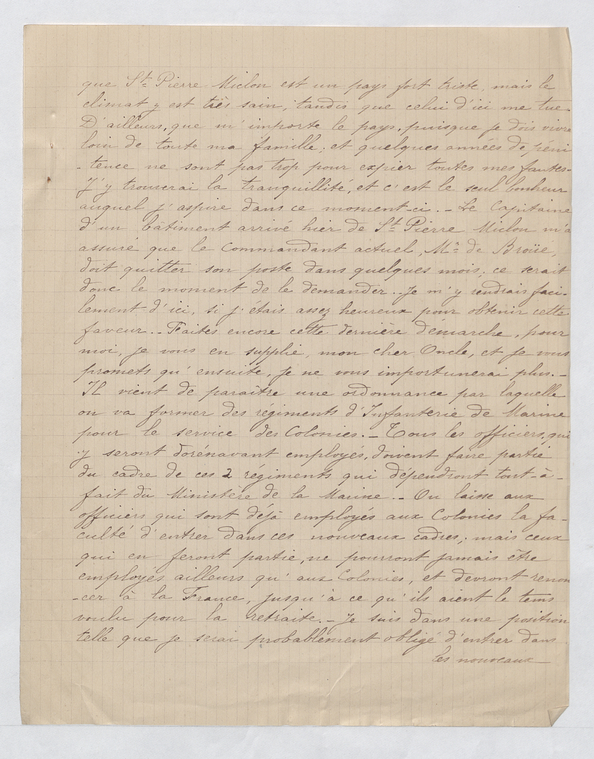 que St. Pierre Miclon est un pays fort triste, mais le
climat y est très sain, tandis que celui d'ici me tue.
D'ailleurs, que m'importe le pays, puisque je dois vivre
loin de toute ma famille, et quelques années de péni-
-tence ne sont pas trop pour expier toutes mes fautes.
J'y trouverai la tranquillité, et c'est le seul bonheur
auquel j'aspire dans ce moment-ci. - Le Capitaine
d'un bâtiment arrivé hier de St. Pierre Miclon m'a
assuré que le Commandant actuel, Mr. de Broüe,
doit quitter son poste dans quelques mois; ce serait
donc le moment de le demander. Je m'y rendrais faci-
lement d'ici, si j'étais assez heureux pour obtenir cette
faveur. - Faites encore cette dernière démarche, pour
moi, je vous en supplie, mon cher Oncle, et je vous
promets qu'ensuite, je ne vous importunerai plus. -
Il vient de paraître une ordonnance par laquelle
on va former des régiments d'Infanterie de Marine
pour le service des Colonies. - Tous les officiers, qui
y seront dorénavant employés, doivent faire partie
du cadre de ces 2 régiments qui dépendront tout-à-
fait du Ministère de la Marine. - On laisse aux
officiers qui sont déjà employés aux Colonies la fa-
culté d'entrer dans ces nouveaux cadres; mais ceux
qui en feront partie, ne pourront jamais être
employés ailleurs qu'aux Colonies, et devront renon
-cer à la France, jusqu'à ce qu'ils aient le tems
voulu pour la retraite. - Je suis dans une position
telle que je serai probablement obligé d'entrer dans
les nouveaux